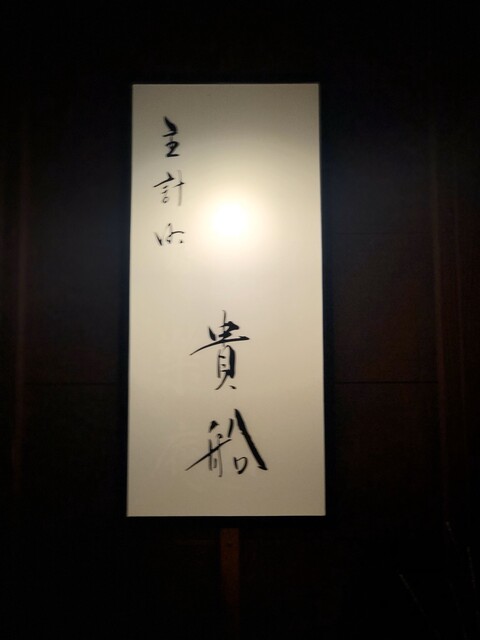 主計町
貴船